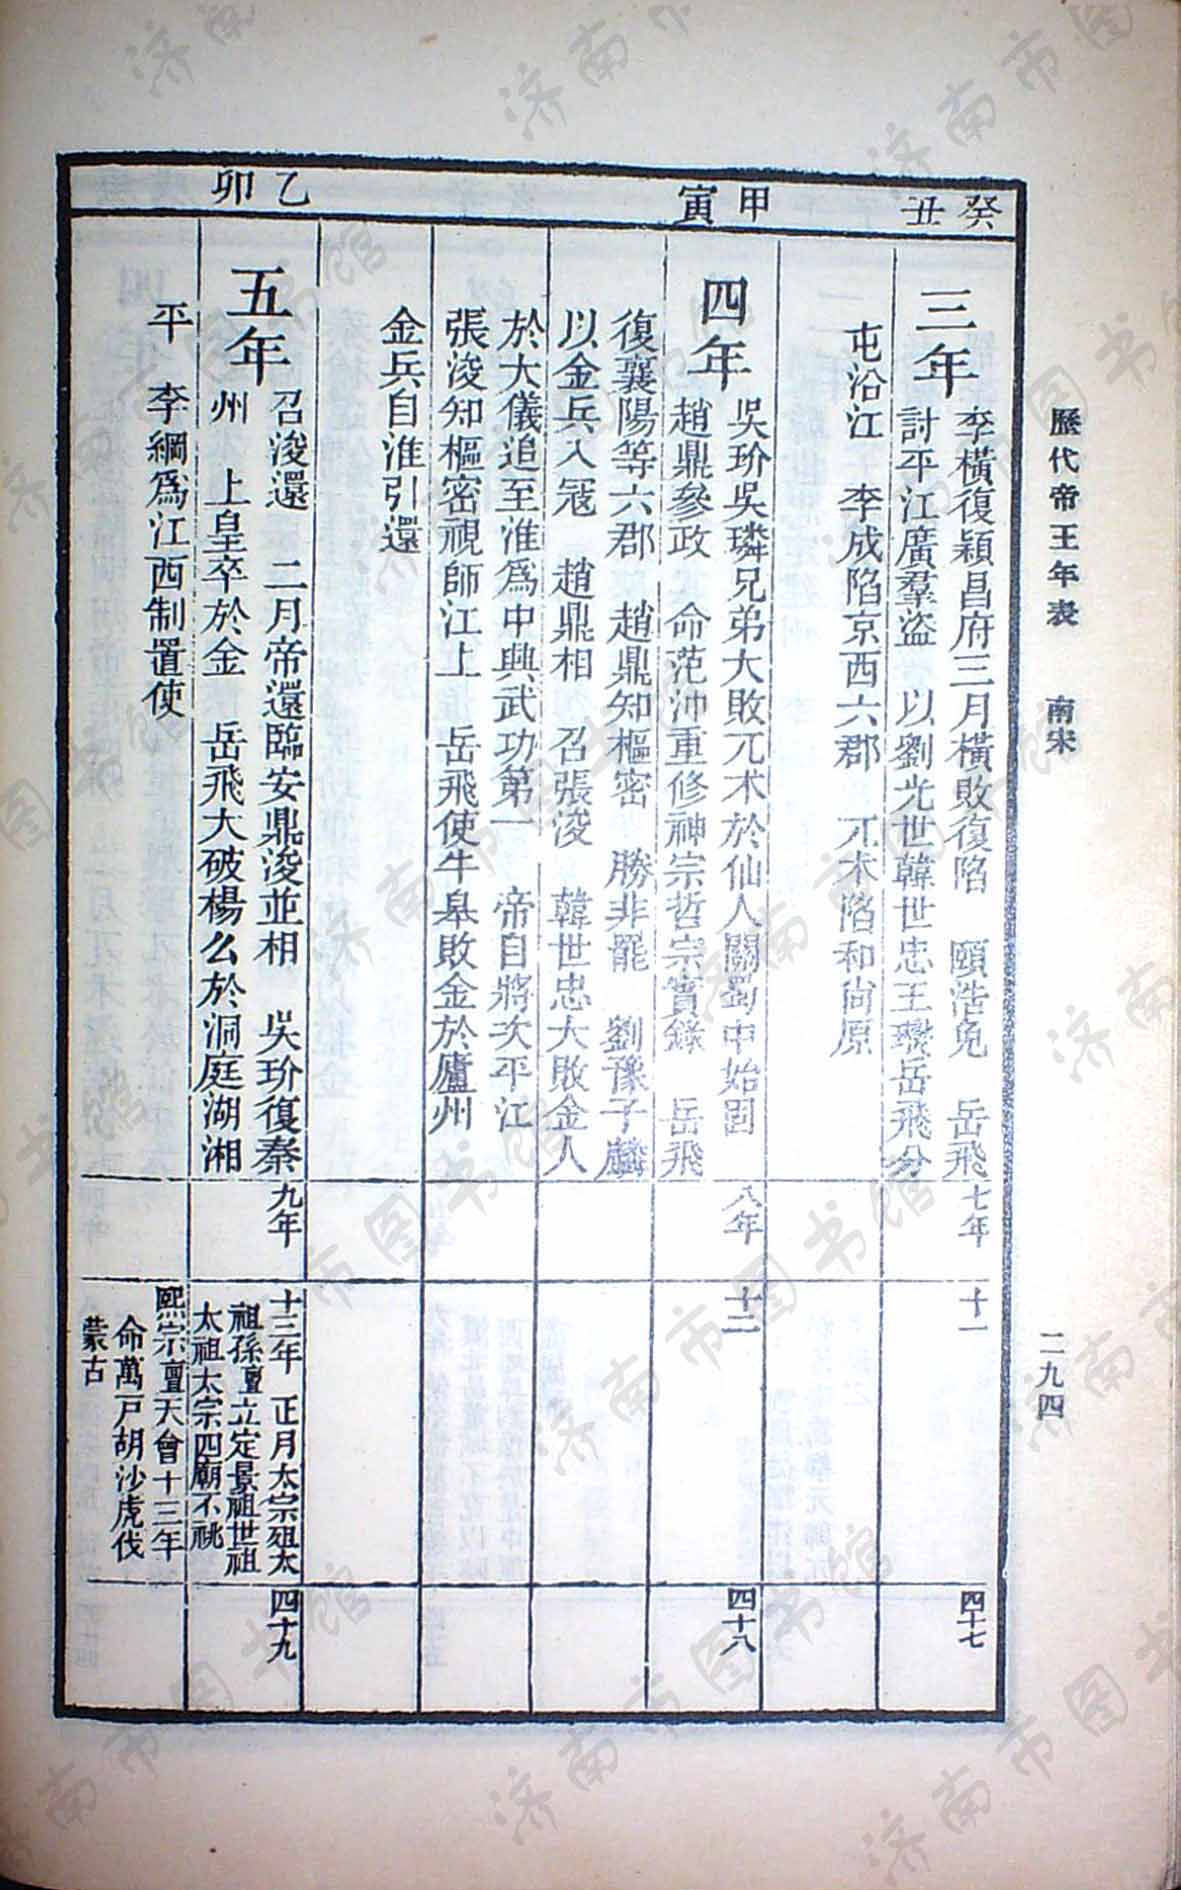 歷代帝王年表　南宋
二九四
癸丑
三年
李橫復潁昌府三月橫敗復陷　頤浩免　岳飛
討平江廣羣盜　以劉光世韓世忠王𤫉岳飛分
屯沿江　李成陷京西六郡　兀朮陷和尚原
七年
十一
四十七
甲寅
四年
吳玠吳璘兄弟大敗兀朮於仙人關蜀中始固
趙鼎參政　命范沖重修神宗哲宗實錄　岳飛
復襄陽等六郡　趙鼎知樞密　勝非罷　劉豫子麟
以金兵入寇　趙鼎相　召張浚　韓世忠大敗金人
於大儀追至淮爲中興武功第一　帝自將次平江
張浚知樞密視師江上　岳飛使牛皋敗金於廬州
金兵自淮引還
八年
十二
四十八
乙卯
五年
召浚還　二月帝還臨安鼎浚並相　吳玠復秦
州　上皇卒於金　岳飛大破楊么於洞庭湖湘
平　李綱爲江西制置使
九年
十三年　正月太宗殂太
祖孫亶立定景祖世祖
太祖太宗四廟不祧
熙宗亶天會十三年
命萬戸胡沙虎伐
蒙古
四十九
济南市图书馆